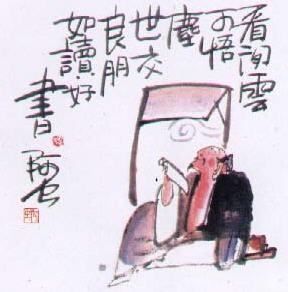 看閒雲
可悟
塵
世交
良朋
如讀好
書
阿虫